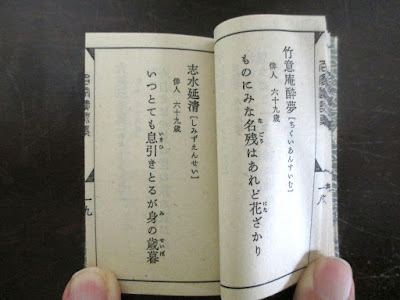 竹意庵酔夢[ちくいあんすいむ]
俳人 六十九歳
ものにみな名残はあれど花ざかり
なごり
はな
一八
志水延清[しみずえんせい]
俳人 六十九歳
いつとても息引きとるが身の歳暮
いきひ
み
せいぼ
一九